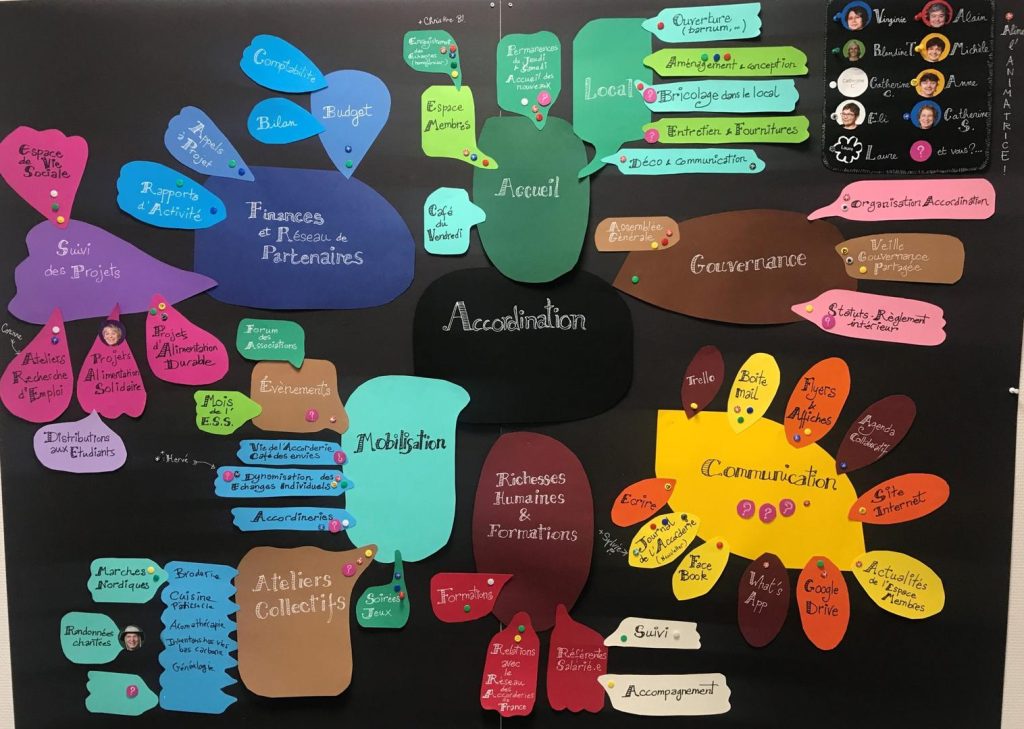 Accordination
Finances
et Réseau de
Partenaires
Comptabilité
Budget
Bilan
Appels
à Projets
Rapports
d'Activité
Suivi
des Projets
Espace
de Vie
Sociale
Corinne
Ateliers
Recherche
d'Emploi
Projets
Alimentation
Solidaire
Projets
d'Alimentation
Durable
Distributions
aux Etudiants
Accueil
+ Christine B!
Enregistrement
des
Echanges
Espace
Membres
Permanences
du Jeudi
& Samedi
Accueil des
nouveaux
Café
du
Vendredi
Local
Ouverture
(barnum,...)
Aménagement & conception
Bricolage dans le local
Entretien & Fournitures
Déco & Communication
Virginie
Alain
Blandine T.
Michèle
Catherine
C.
Catherine
C.
Anne
Eli
Catherine
S.
Laure
Laure
?
et vous?...
Aline
l'ANIMATRICE!
Gouvernance
Assemblée
Générale
Organisation Accordination
Veille
Gouvernance
Partagée
Statuts-Règlement
intérieur
?
Mobilisation
Forum
des
Associations
Évènements
?
Mois
de l'
E.S.S.
Vie de l'Accorderie
Café des envies
?
+ Hervé
Dynamisation des
Échanges Individuels
?
Accordineries
?
Soirées
Jeux
Ateliers
Collectifs
?
Marches
Nordiques
Randonnées
chantées
?
Broderie
Cuisine
Papicelle
Aromathérapie
Inventons nos vies
bas carbone
Généalogie
Richesses
Humaines
&
Formations
Formations
Relations
avec
le
Réseau
des
Accorderies
de
France
Référent.es
Salarié.e
Suivi
Accompagnement
Communication
? ? ?
Trello
Boîte
Mail
Flyers
&
Affiches
Agenda
Collaboratif
Site
Internet
Actualités
de l'Espace
Membres
Google
Drive
What's
App
Face
Book
Journal
de l'Accorderie
(Newsletter)
Ecrire